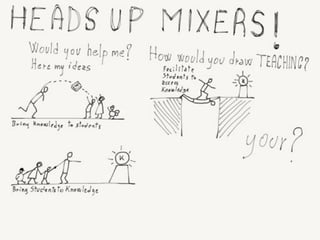 HEADS UP MIXERS!
Would you help me?
Here my ideas
How would you draw TEACHING?
Facilitate
Students to
access
Knowledge
K
Bring Knowledge to students
your?
K
Bring Students to Knowledge